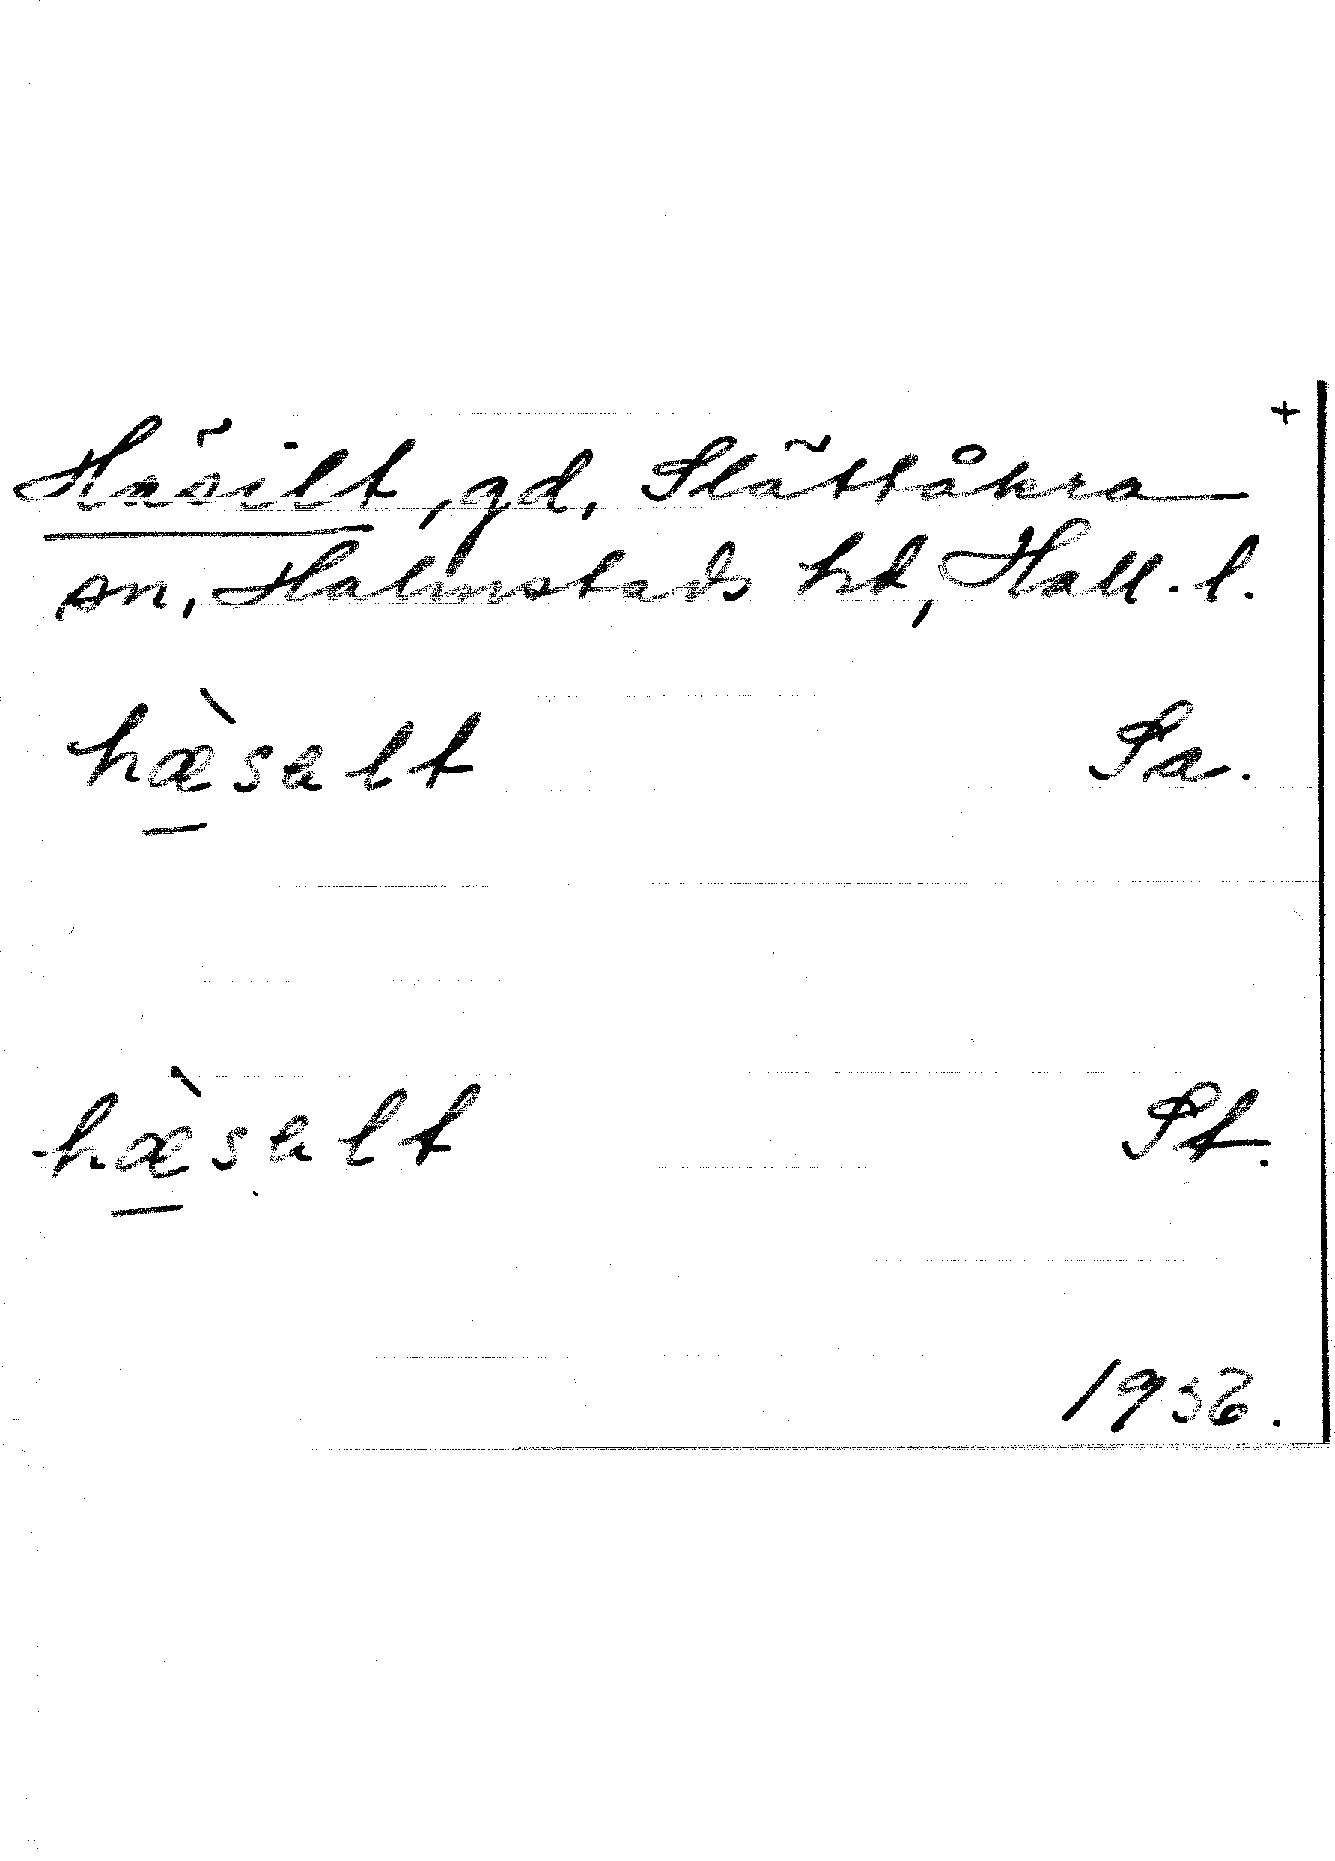 +
Häsilt, gd, Slättåkra
sn, Halmstads hd, Hall. l.
hæ̀salt Sa.
hæ̀salt St.
1936.